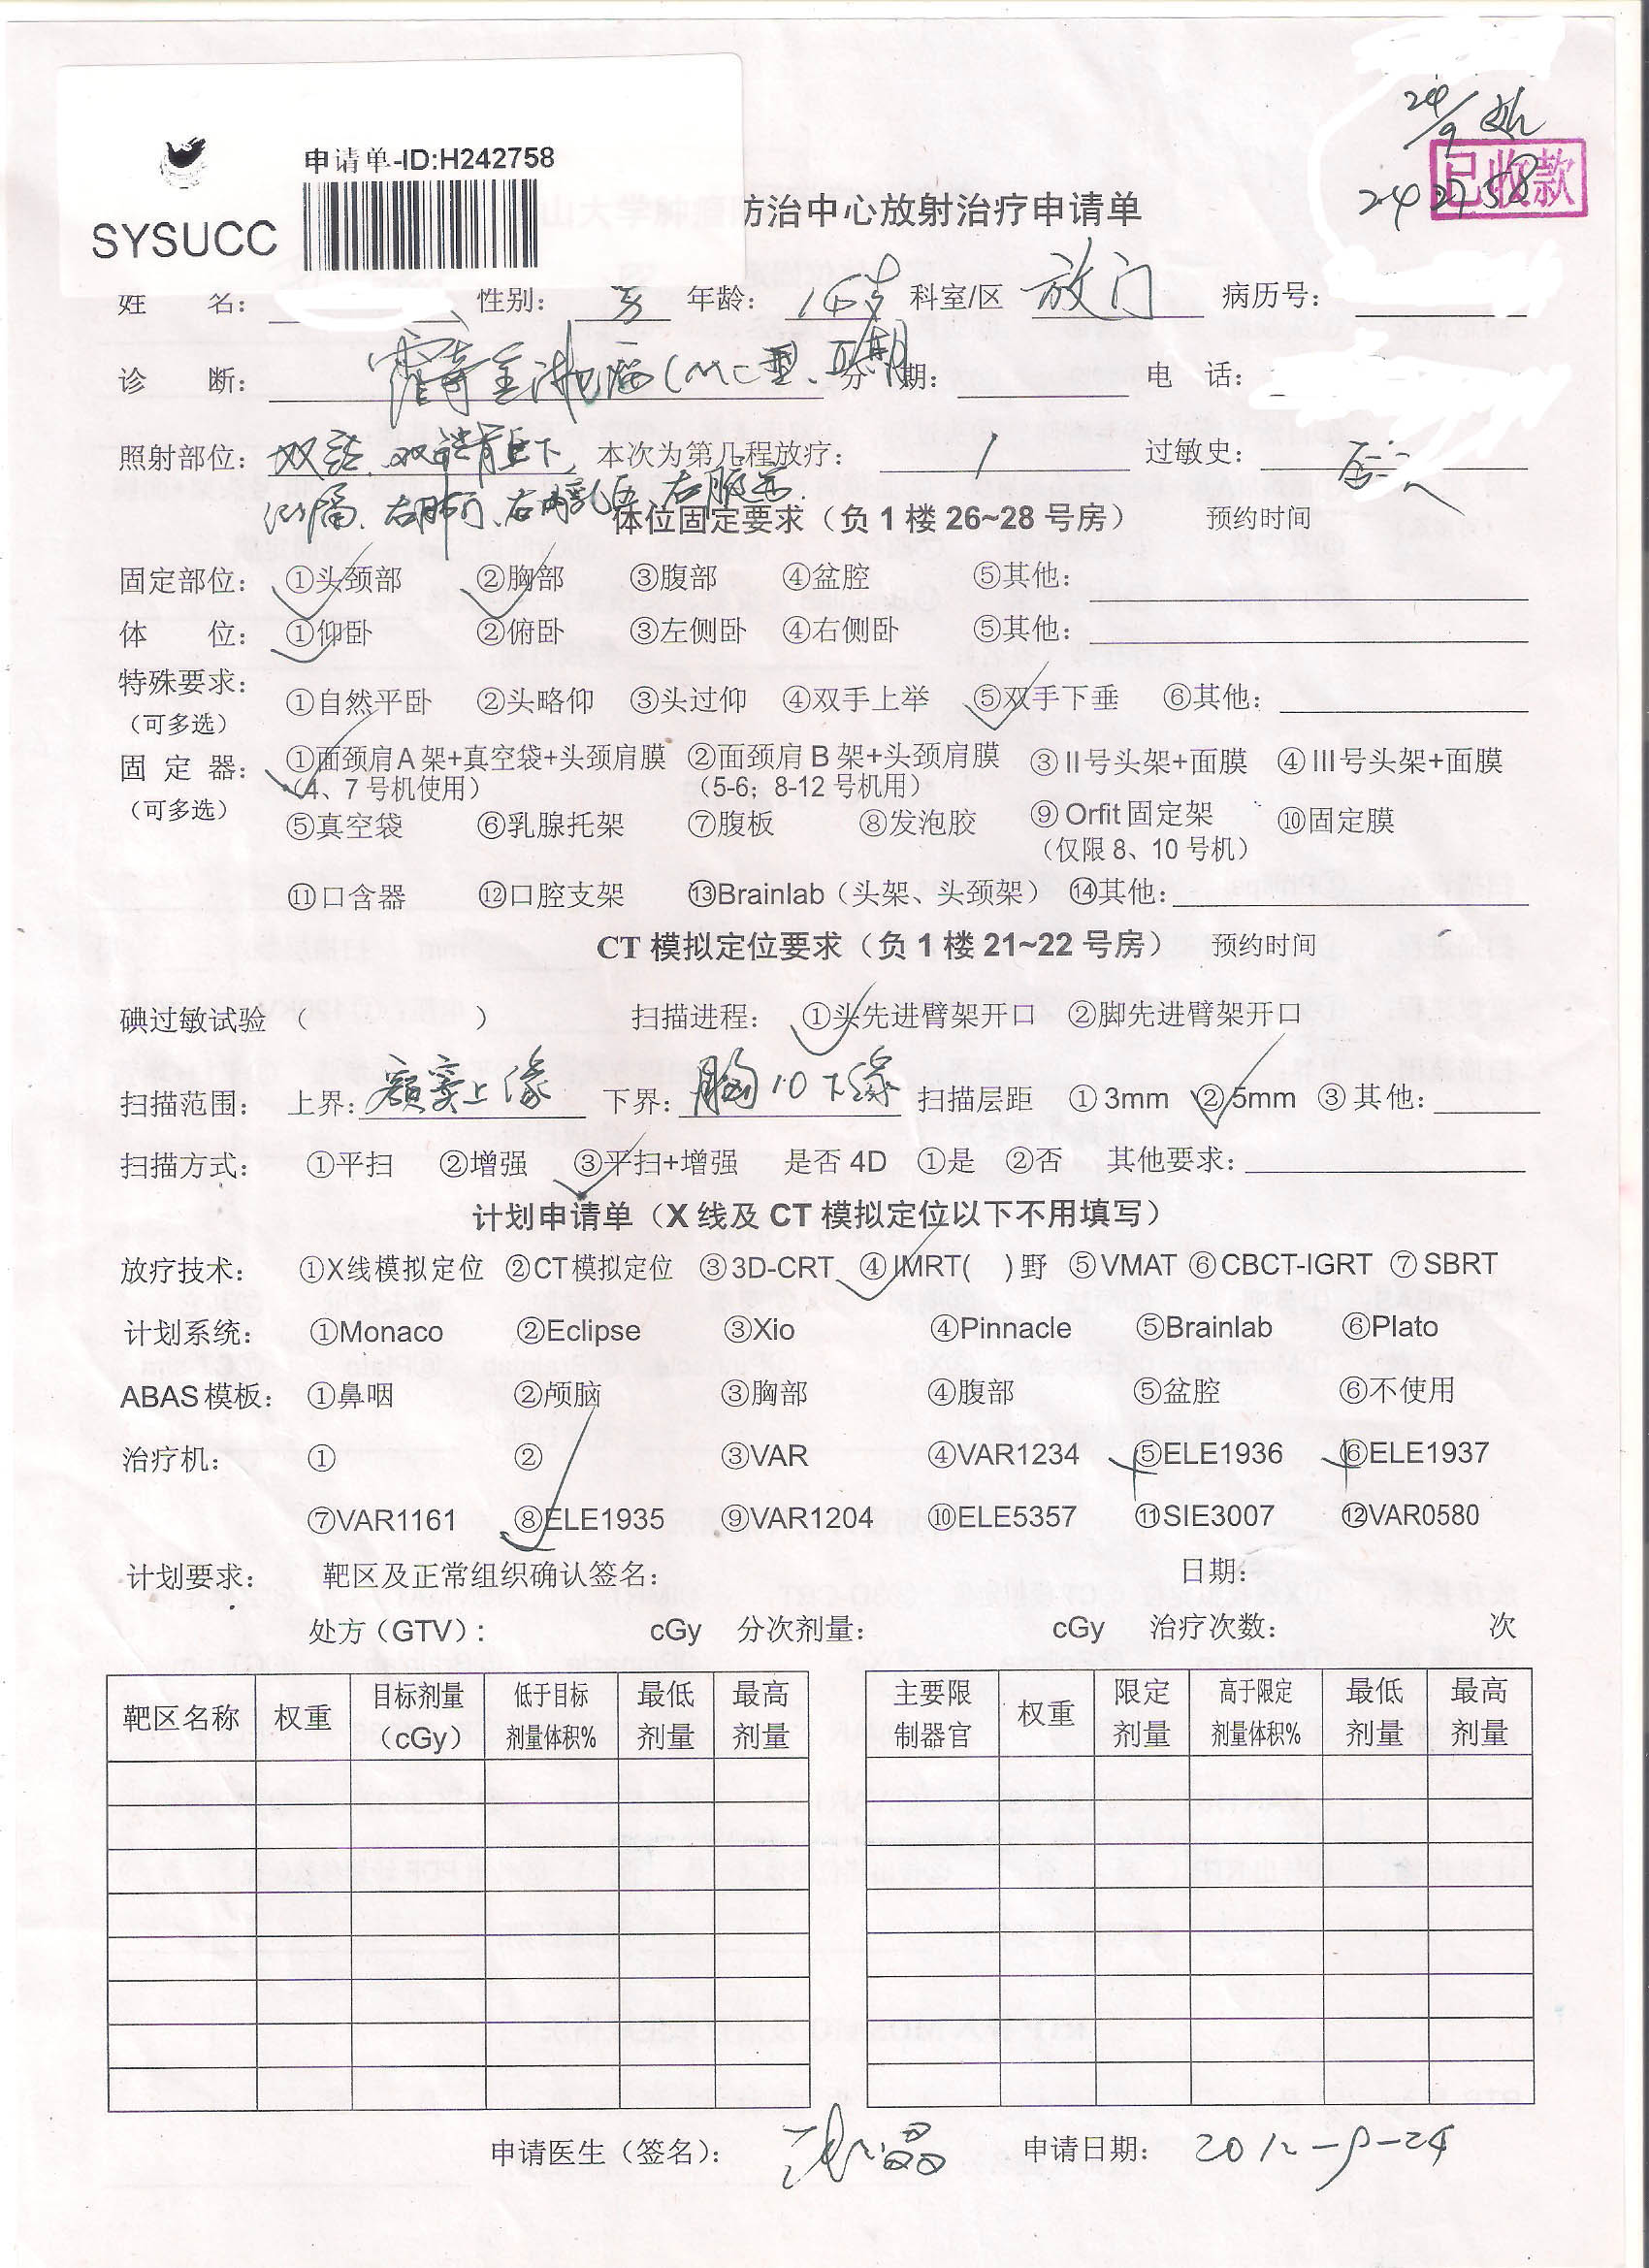 24/9
已收款
242758
申请单-ID:H242758
SYSUCC
防治中心放射治疗申请单
姓 名: 性别: 男 年龄: 岁 科室/区 放门 病历号:
诊 断: 霍奇金淋巴瘤(MC型、II期 分 期: 电 话:
照射部位: 双颈、双锁骨上下、 本次为第几程放疗: 1 过敏史: 否认
纵隔、右肺门、右内乳区、右腋下
体位固定要求(负1楼26~28号房) 预约时间
固定部位: ①头颈部 ②胸部 ③腹部 ④盆腔 ⑤其他:
体 位: ①仰卧 ②俯卧 ③左侧卧 ④右侧卧 ⑤其他:
特殊要求: ①自然平卧 ②头略仰 ③头过仰 ④双手上举 ⑤双手下垂 ⑥其他:
(可多选)
固 定 器: ①面颈肩A架+真空袋+头颈肩膜 ②面颈肩B架+头颈肩膜 ③II号头架+面膜 ④III号头架+面膜
(可多选) (4、7号机使用) (5-6; 8-12号机用)
⑤真空袋 ⑥乳腺托架 ⑦腹板 ⑧发泡胶 ⑨Orfit固定架 ⑩固定膜
(仅限8、10号机)
⑪口含器 ⑫口腔支架 ⑬Brainlab(头架、头颈架) ⑭其他:
CT模拟定位要求(负1楼21~22号房) 预约时间
碘过敏试验 ( ) 扫描进程: ①头先进臂架开口 ②脚先进臂架开口
扫描范围: 上界: 额窦上缘 下界: 胸10下缘 扫描层距 ①3mm ②5mm ③其他:
扫描方式: ①平扫 ②增强 ③平扫+增强 是否4D ①是 ②否 其他要求:
计划申请单(X线及CT模拟定位以下不用填写)
放疗技术: ①X线模拟定位 ②CT模拟定位 ③3D-CRT ④IMRT( )野 ⑤VMAT ⑥CBCT-IGRT ⑦SBRT
计划系统: ①Monaco ②Eclipse ③Xio ④Pinnacle ⑤Brainlab ⑥Plato
ABAS模板: ①鼻咽 ②颅脑 ③胸部 ④腹部 ⑤盆腔 ⑥不使用
治疗机: ① ② ③VAR ④VAR1234 ⑤ELE1936 ⑥ELE1937
⑦VAR1161 ⑧ELE1935 ⑨VAR1204 ⑩ELE5357 ⑪SIE3007 ⑫VAR0580
计划要求: 靶区及正常组织确认签名: 日期:
处方(GTV): cGy 分次剂量: cGy 治疗次数: 次
靶区名称 权重 目标剂量(cGy) 低于目标剂量体积% 最低剂量 最高剂量
主要限制器官 权重 限定剂量 高于限定剂量体积% 最低剂量 最高剂量
申请医生(签名): 申请日期: 2012-9-24